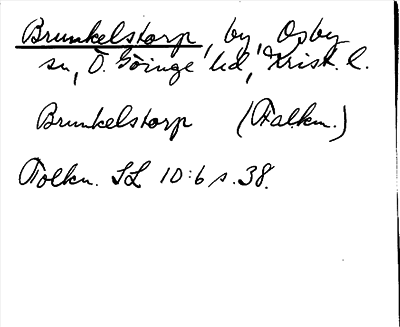 Brunkelstorp, by, Osby
sn, Ö. Göinge hd, Krist. l.
Brunkelstorp (Falkm.)
Folkm. SL 10:6 s. 38.